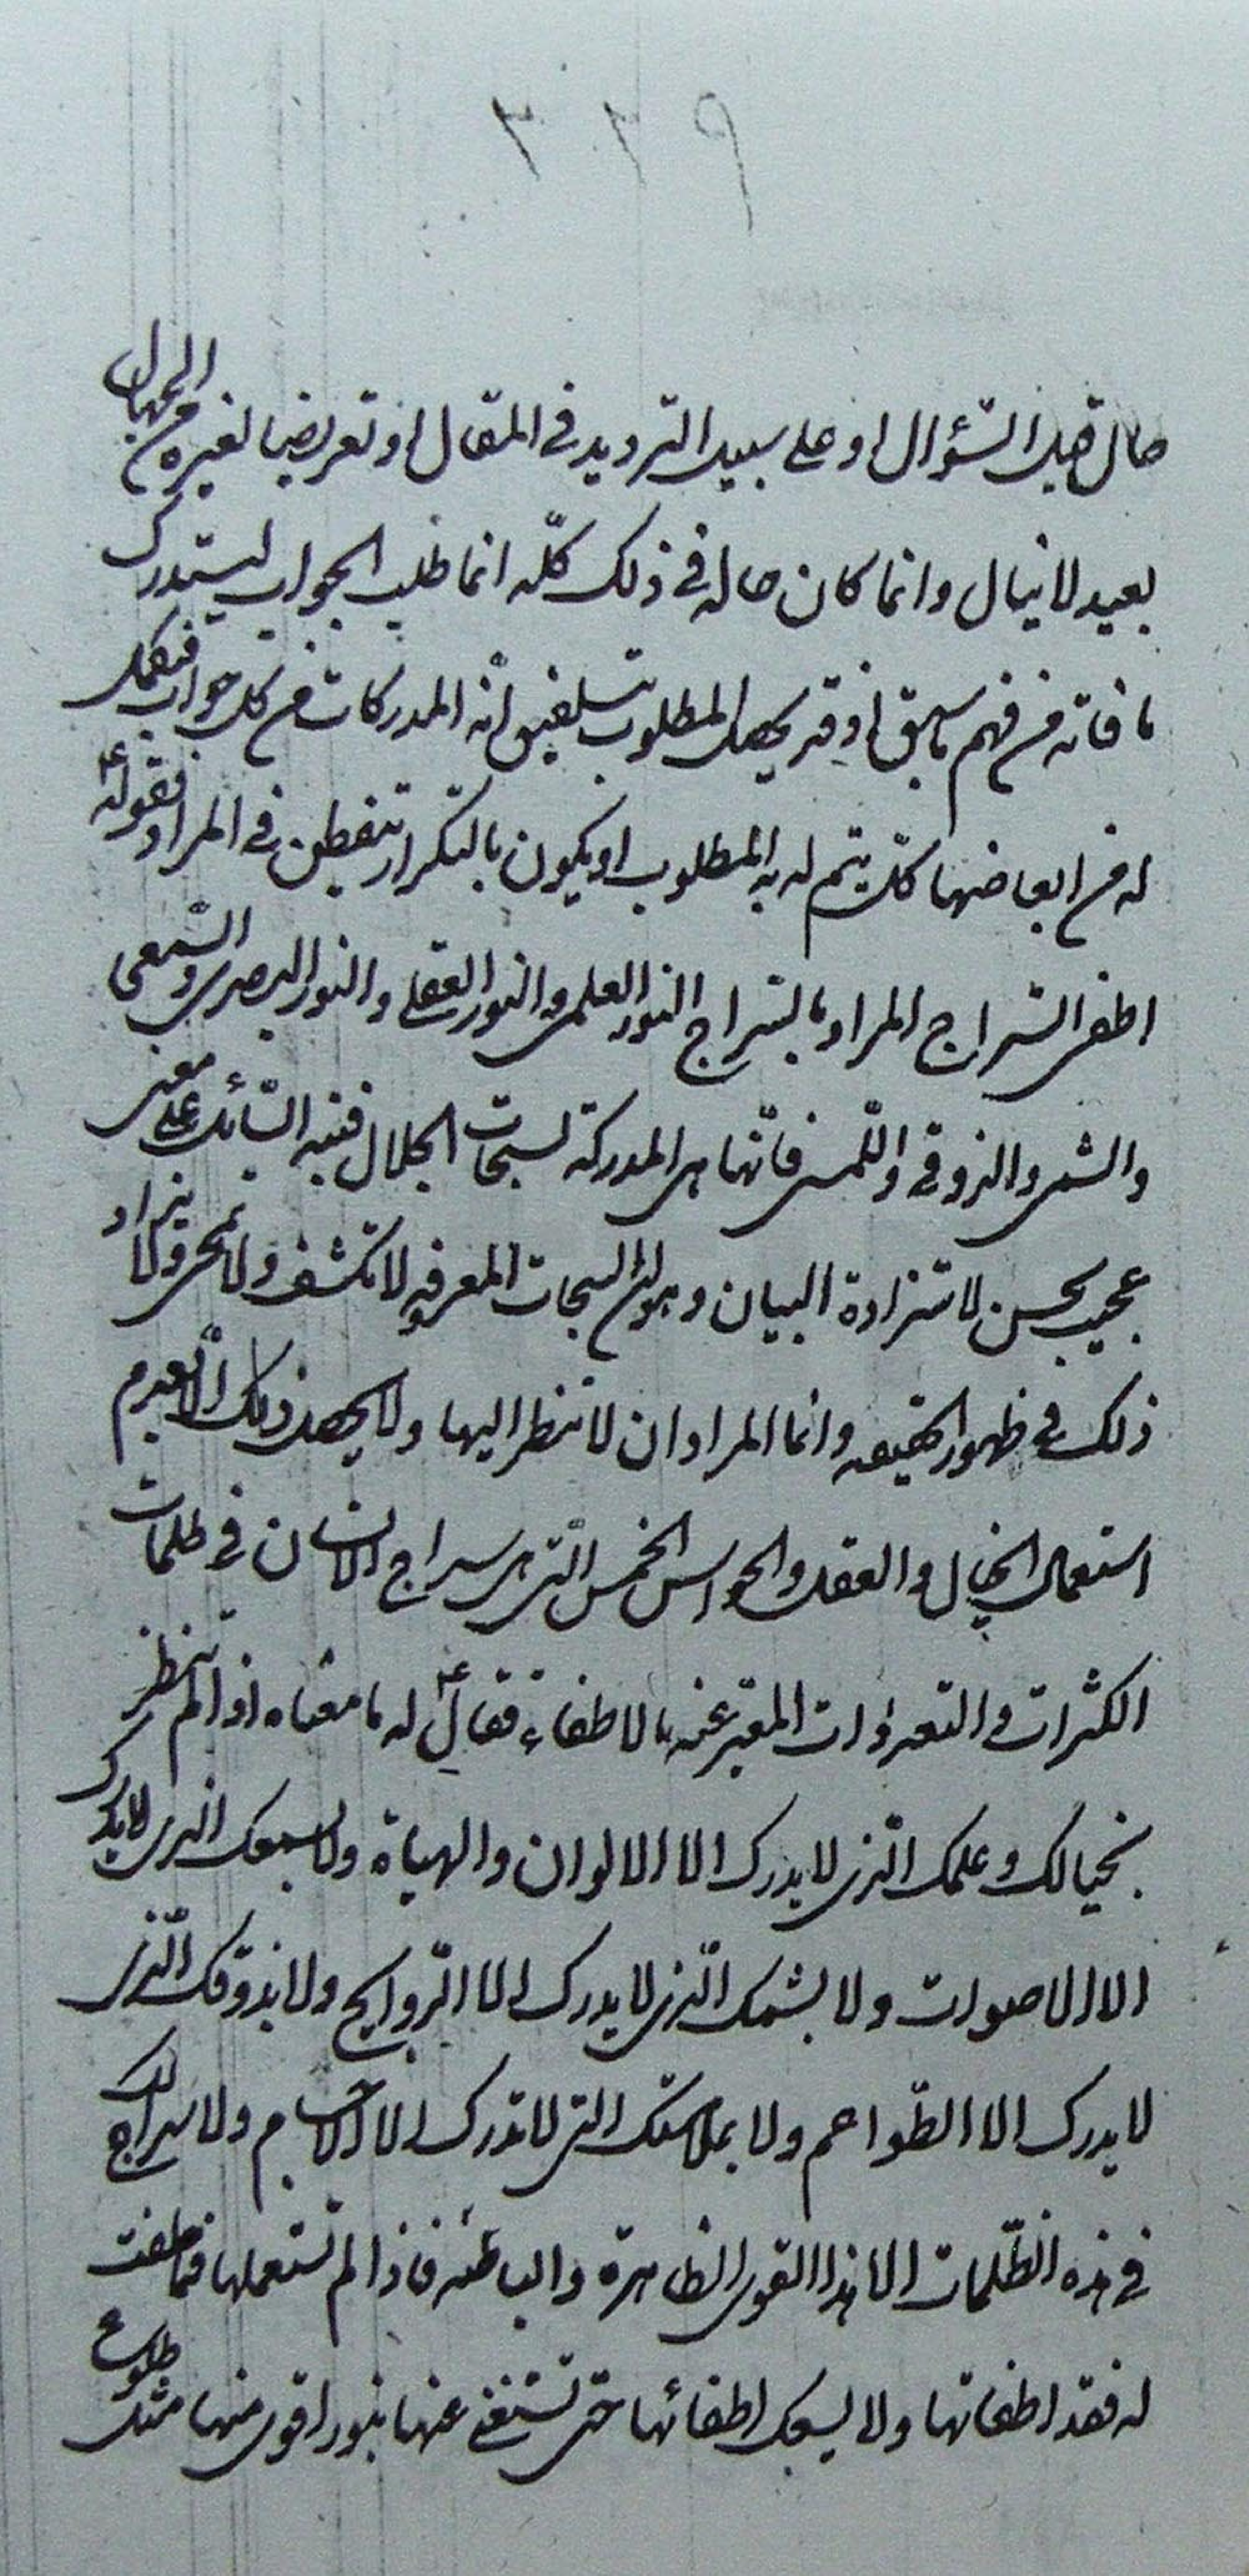 حال قبل السّؤال او على سبيل الترديد فى المقال او تعريضا لغيره من الجهال
بعيد لا ينال وانما كان حاله فى ذلك كلّه انما طلب الجواب ليستدرك
ما فاته من فهم ما سبق اذ قد يحصل المطلوب بتلفيق المدركات من كل جواب فيكمل
له من ابعاضها كلّ يتم له به المطلوب او يكون بالتكرار يتفطن فى المراد فقوله ع
اطفى السّراج المراد بالسّراج النور العلمى والنور العقلى والنور البصرى والسّمعى
والشمى والذوقى واللّمسى فانّها هى المدركة لسبحات الجلال فنبّه السّائل على معنى
عجيب يحسن لاستزادة البيان وهو ان السبحات المعروفه لا تكشف ولا تمحى ولا يراد
ذلك فى ظهور الحقيقه وانما المراد ان لا تنظر اليها ولا يحصل ذلك الّا بعدم
استعمال الخيال والعقل والحواس الخمس الّتى هى سراج الانسان فى ظلمات
الكثرات والتعددات المعبّر عنه بالاطفاء فقال ع له ما معناه اذا لم تنظر
بخيالك وعلمك الّذى لا يدرك الا الالوان والهيأة ولا بسمعك الذى لا يدرك
الا الاصوات ولا بشمك الّذى لا يدرك الا الرّوايح ولا بذوقك الّذى
لا يدرك الا الطّواعم ولا بملامستك التى لا تدرك الا الاجسام ولا سراج لك
فى هذه الظّلمات الا هذا القوى الظاهرة والباطنه فاذا لم تستعملها فيما خلقت
له فقد اطفاتها ولا يسعك اطفائها حتى تستغنى عنها بنور اقوى منها مثل طلوع